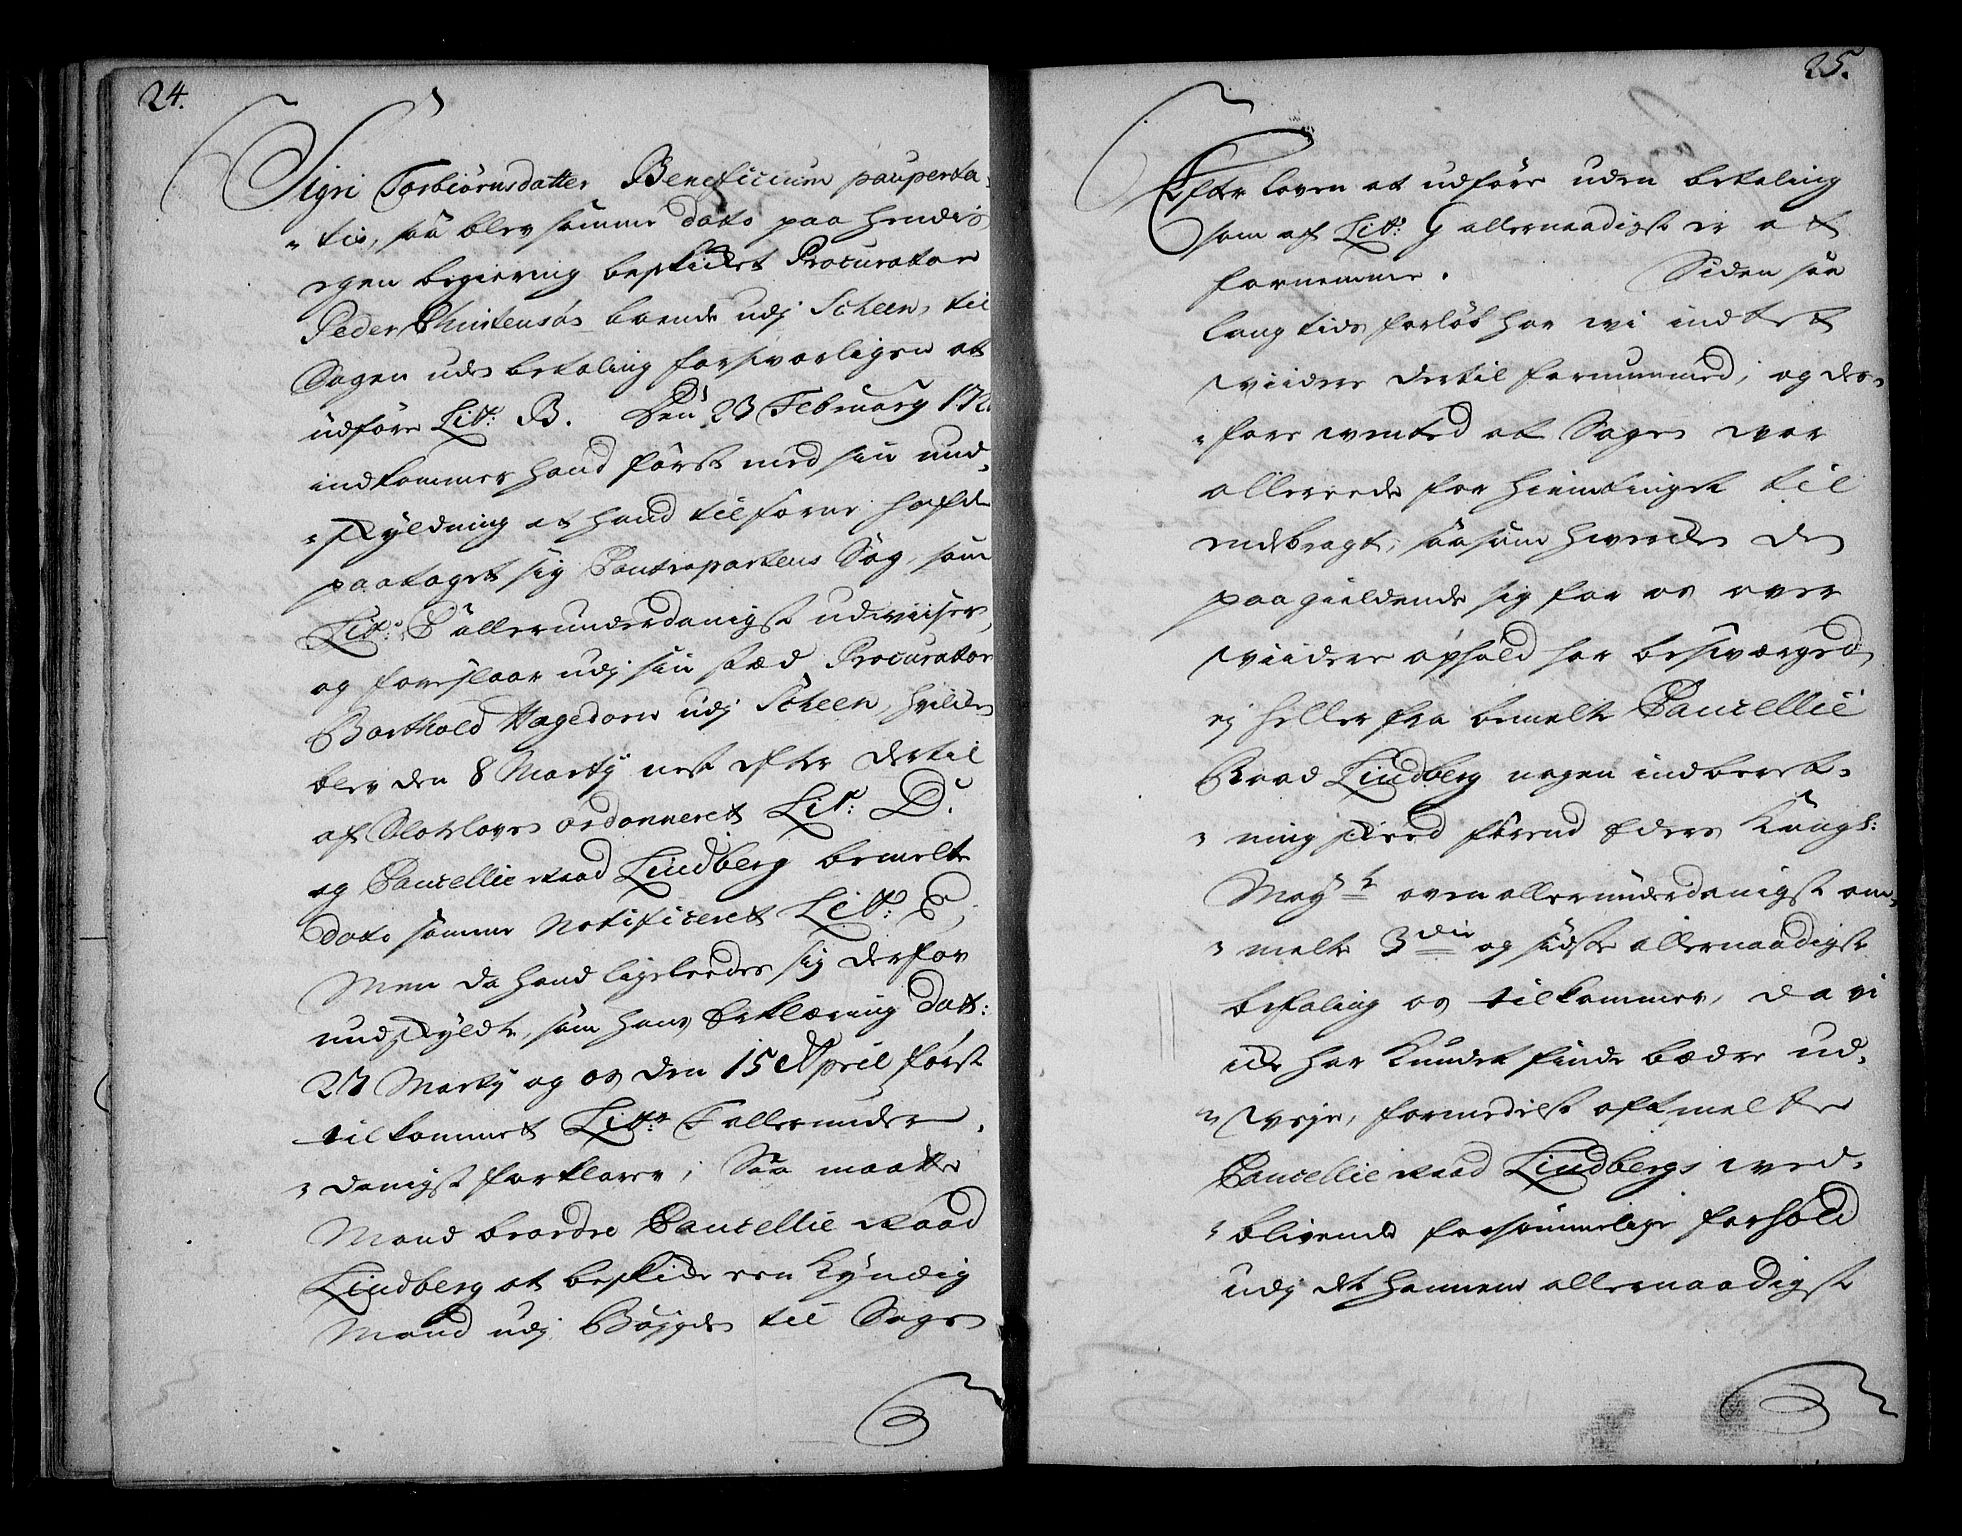 24.
Sigri Torbiörnsdatter Beneficium pauperta-
tis, saa blev samme dato paa hendes
egen begiering beskicket Procurator
Peder Christensøs boende udj Scheen, til
Sagen uden betaling forsvarligen at
udføre Litr: B. Den 23 February
indkommer hand först med sin und-
skyldning at hand tilforne hafde
paataget sig Contrapartens Sag, som
Litr: C allerunderdanigst udwiiser,
og foreslaar udj sin stæd Procurator
Barthold Hagedorn udj Scheen, hvilken
blev den 8 Martij nest efter dertil
af Slotsloven ordonneret Litr: D.
og Cancellie Raad Lindberg bemelte
dato samme notificeret Litr: E,
Men da hand ligeleedes sig derfor
undskyldte, som hans Erklæring dat:
27 Martij og os den 15 April først
tilkommet Litr: F allerunder-
danigst forklarer; Saa maatte
Mand beordre Cancellie Raad
Lindberg at beskicke een kyndig
Mand udj Bøygden til Sagen
25.
Efter loven at udföre uden betaling
som af Litr: G allernaadigst er at
fornemme. Siden saa
lang tids forløb har wi indtet
wiidere dertil fornummed, og der-
fore wented at Sagen war
allereede for Hiemtinget til
endbragt, saasom hwercken de
paagieldende sig for os over
wiidere ophold har besværged,
ej heller fra bemelte Cancellie
Raad Lindberg nogen indberet-
ning skeed förend Eders Kongl:
Mayts ovenallerunderdanigst om-
melte 3die og sidste allernaadigste
befaling os tilkommer, da vi
icke har kundet finde bædre ud-
weje, formedelst oftmelte
Cancellie Raad Lindbergs wed-
blivende forsømmelige forhold
udj det hannem allernaadigst